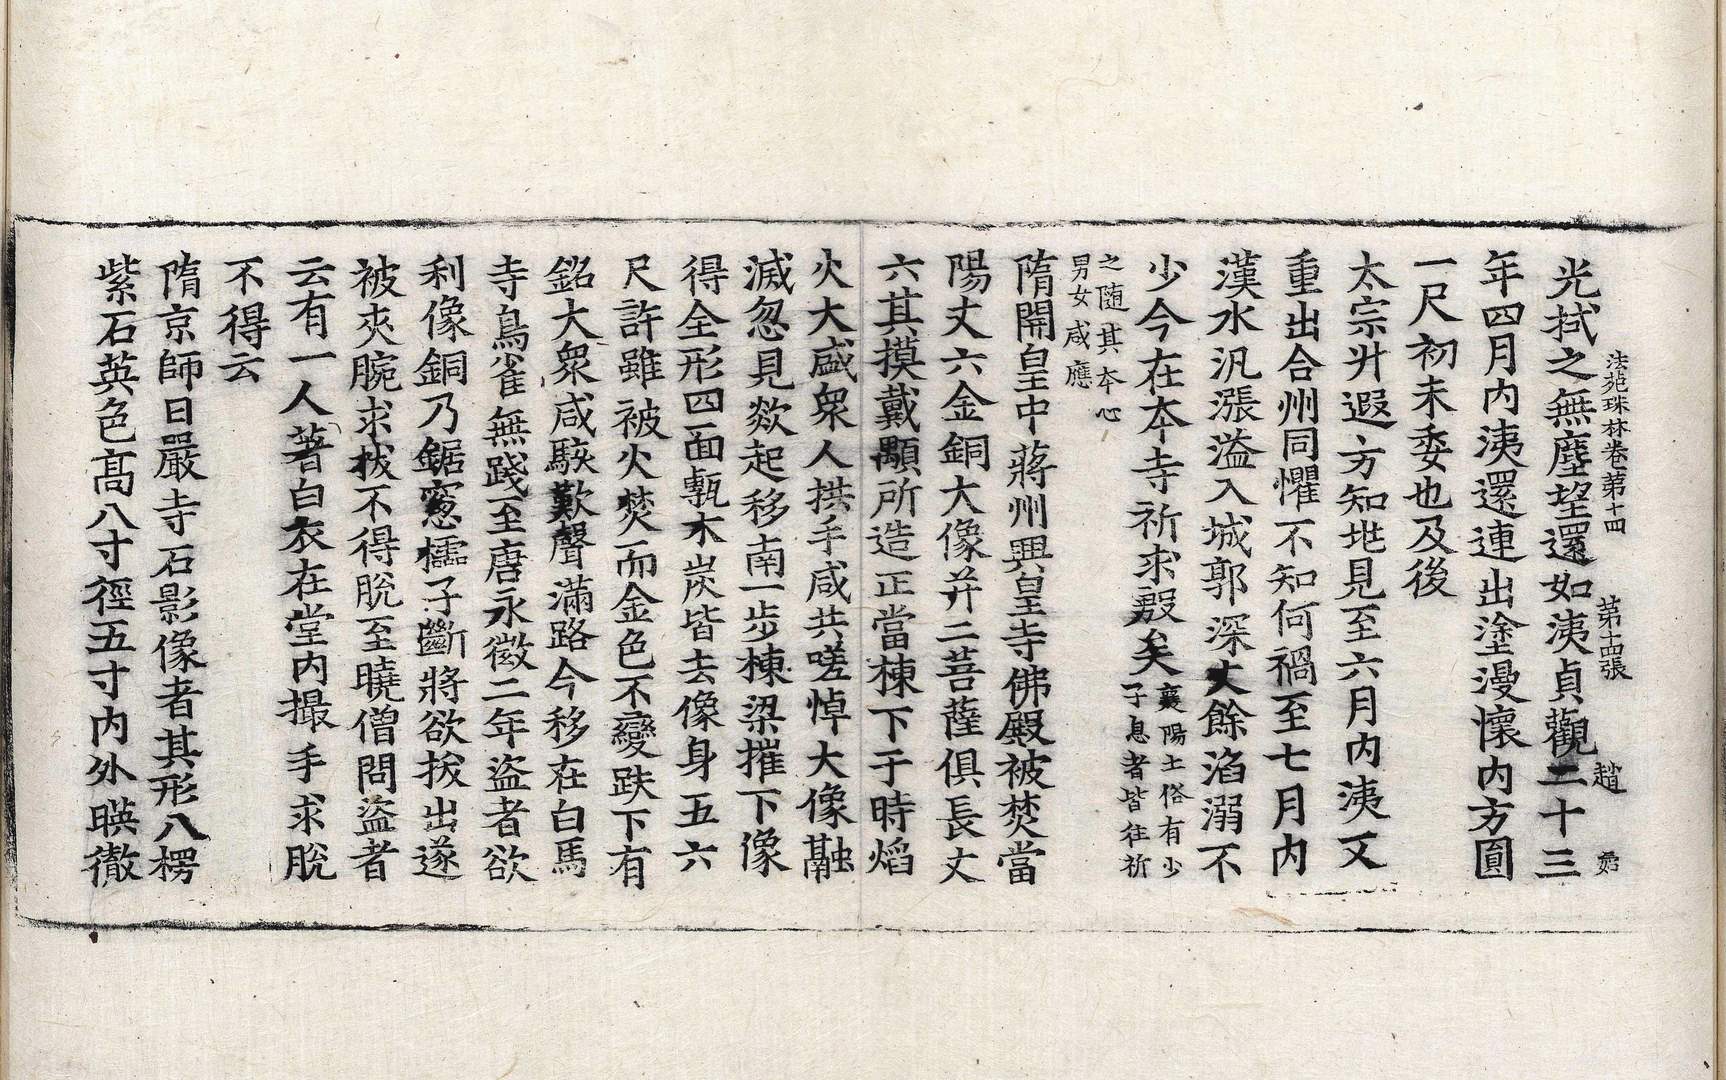 法苑珠林卷第十四 第十四張 趙
光拭之無塵望還如洟貞觀二十三
年四月内洟還連出塗漫懷内方圓
一尺初未委也及後
太宗升遐方知兆見至六月内洟又
重出合州同懼不知何禍至七月内
漢水汎漲溢入城郭深丈餘淊溺不
少今在本寺祈求殷矣襄陽土俗有少
子息者皆往祈
之隨其本心
男女咸應
隋開皇中蔣州興皇寺佛殿被焚當
陽丈六金銅大像并二菩薩俱長丈
六其摸戴顒所造正當棟下于時焰
火大盛衆人拱手咸共嗟悼大像融
滅忽見欻起移南一步棟梁摧下像
得全形四面塼木炭皆去像身五六
尺許雖被火焚而金色不變趺下有
銘大衆咸駭歎聲滿路今移在白馬
寺鳥雀無踐至唐永徽二年盜者欲
利像銅乃鋸窓櫺子斷將欲拔出遂
被夾腕求拔不得脫至曉僧問盜者
云有一人著白衣在堂内撮手求脫
不得云
隋京師日嚴寺石影像者其形八楞
紫石英色高八寸徑五寸内外暎徹